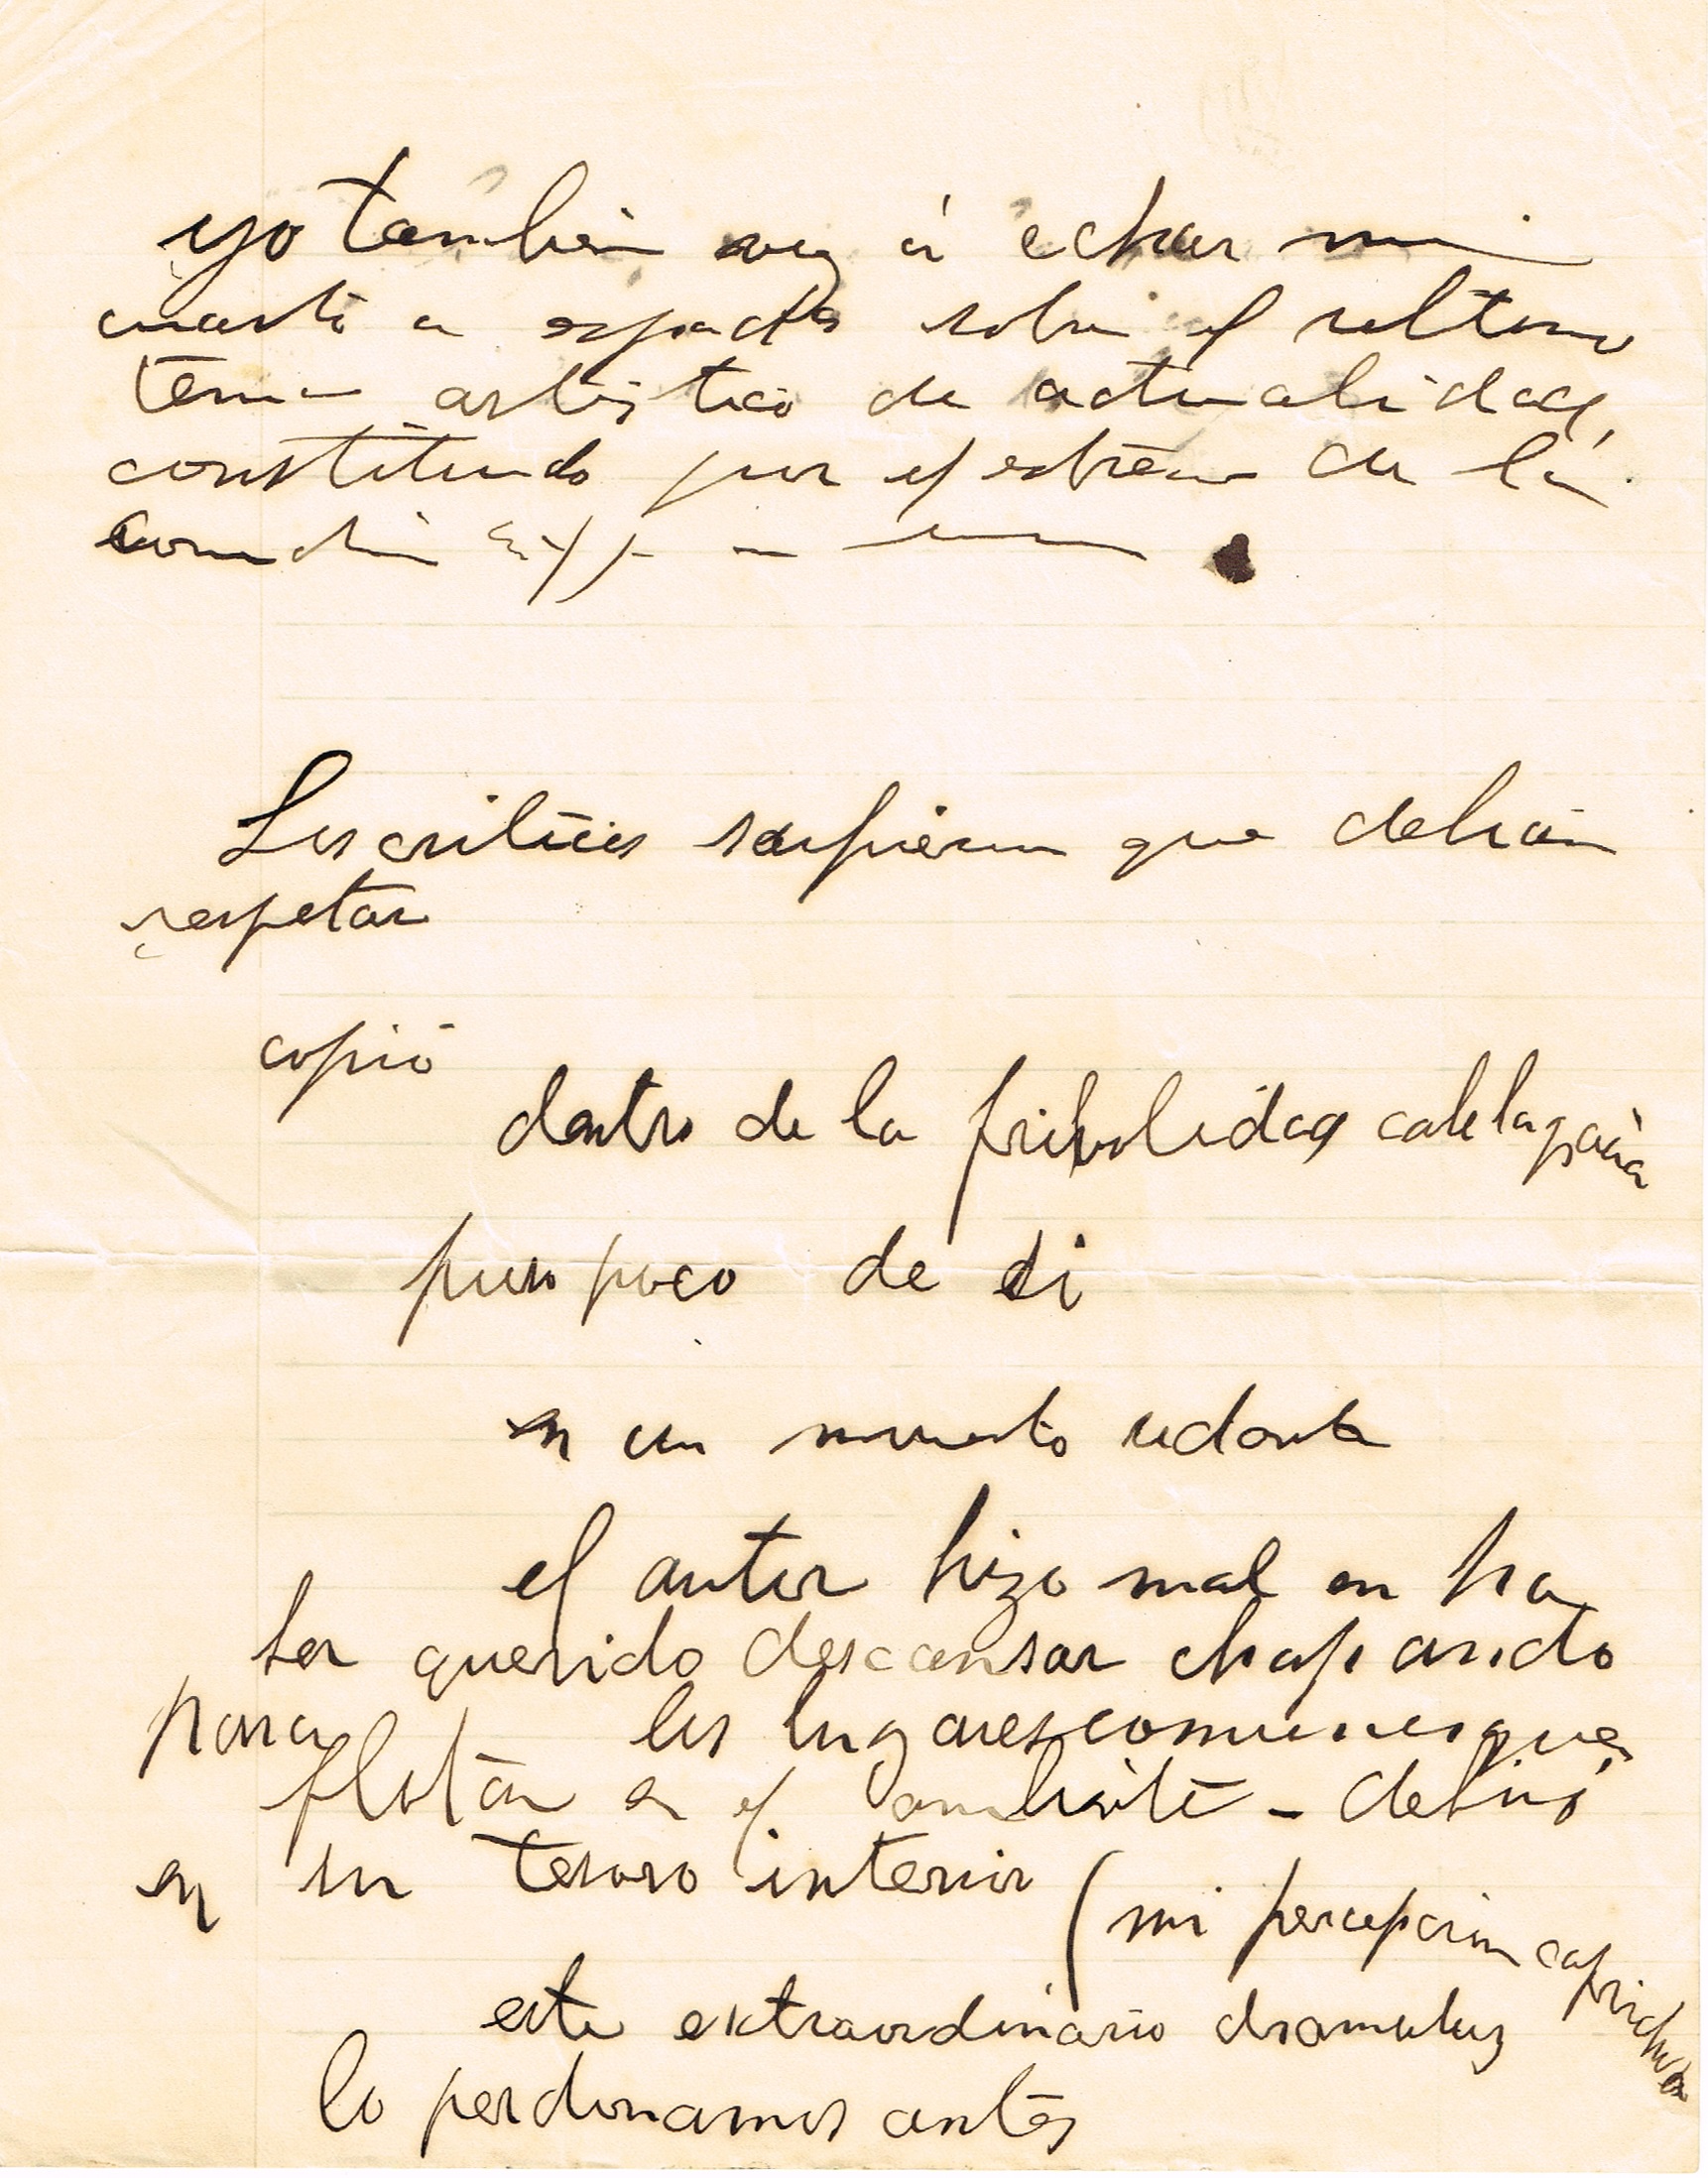 yo también voy á echar mi
cuarto a espadas sobre el ultimo
tema artistico de actualidad,
constituido por el estreno de la
comedia
Los criticos supieron que debian
respetar
copió
dentro de la fribolidad cabe la gracia
puso poco de si
en un momento
el autor hizo mal en ha
ber querido descansar chapando
para los lugares comunes que
flotan en el ambiente - debió
en su tesoro interior (mi percepcion caprichosa
este extraordinario
lo perdonamos antes